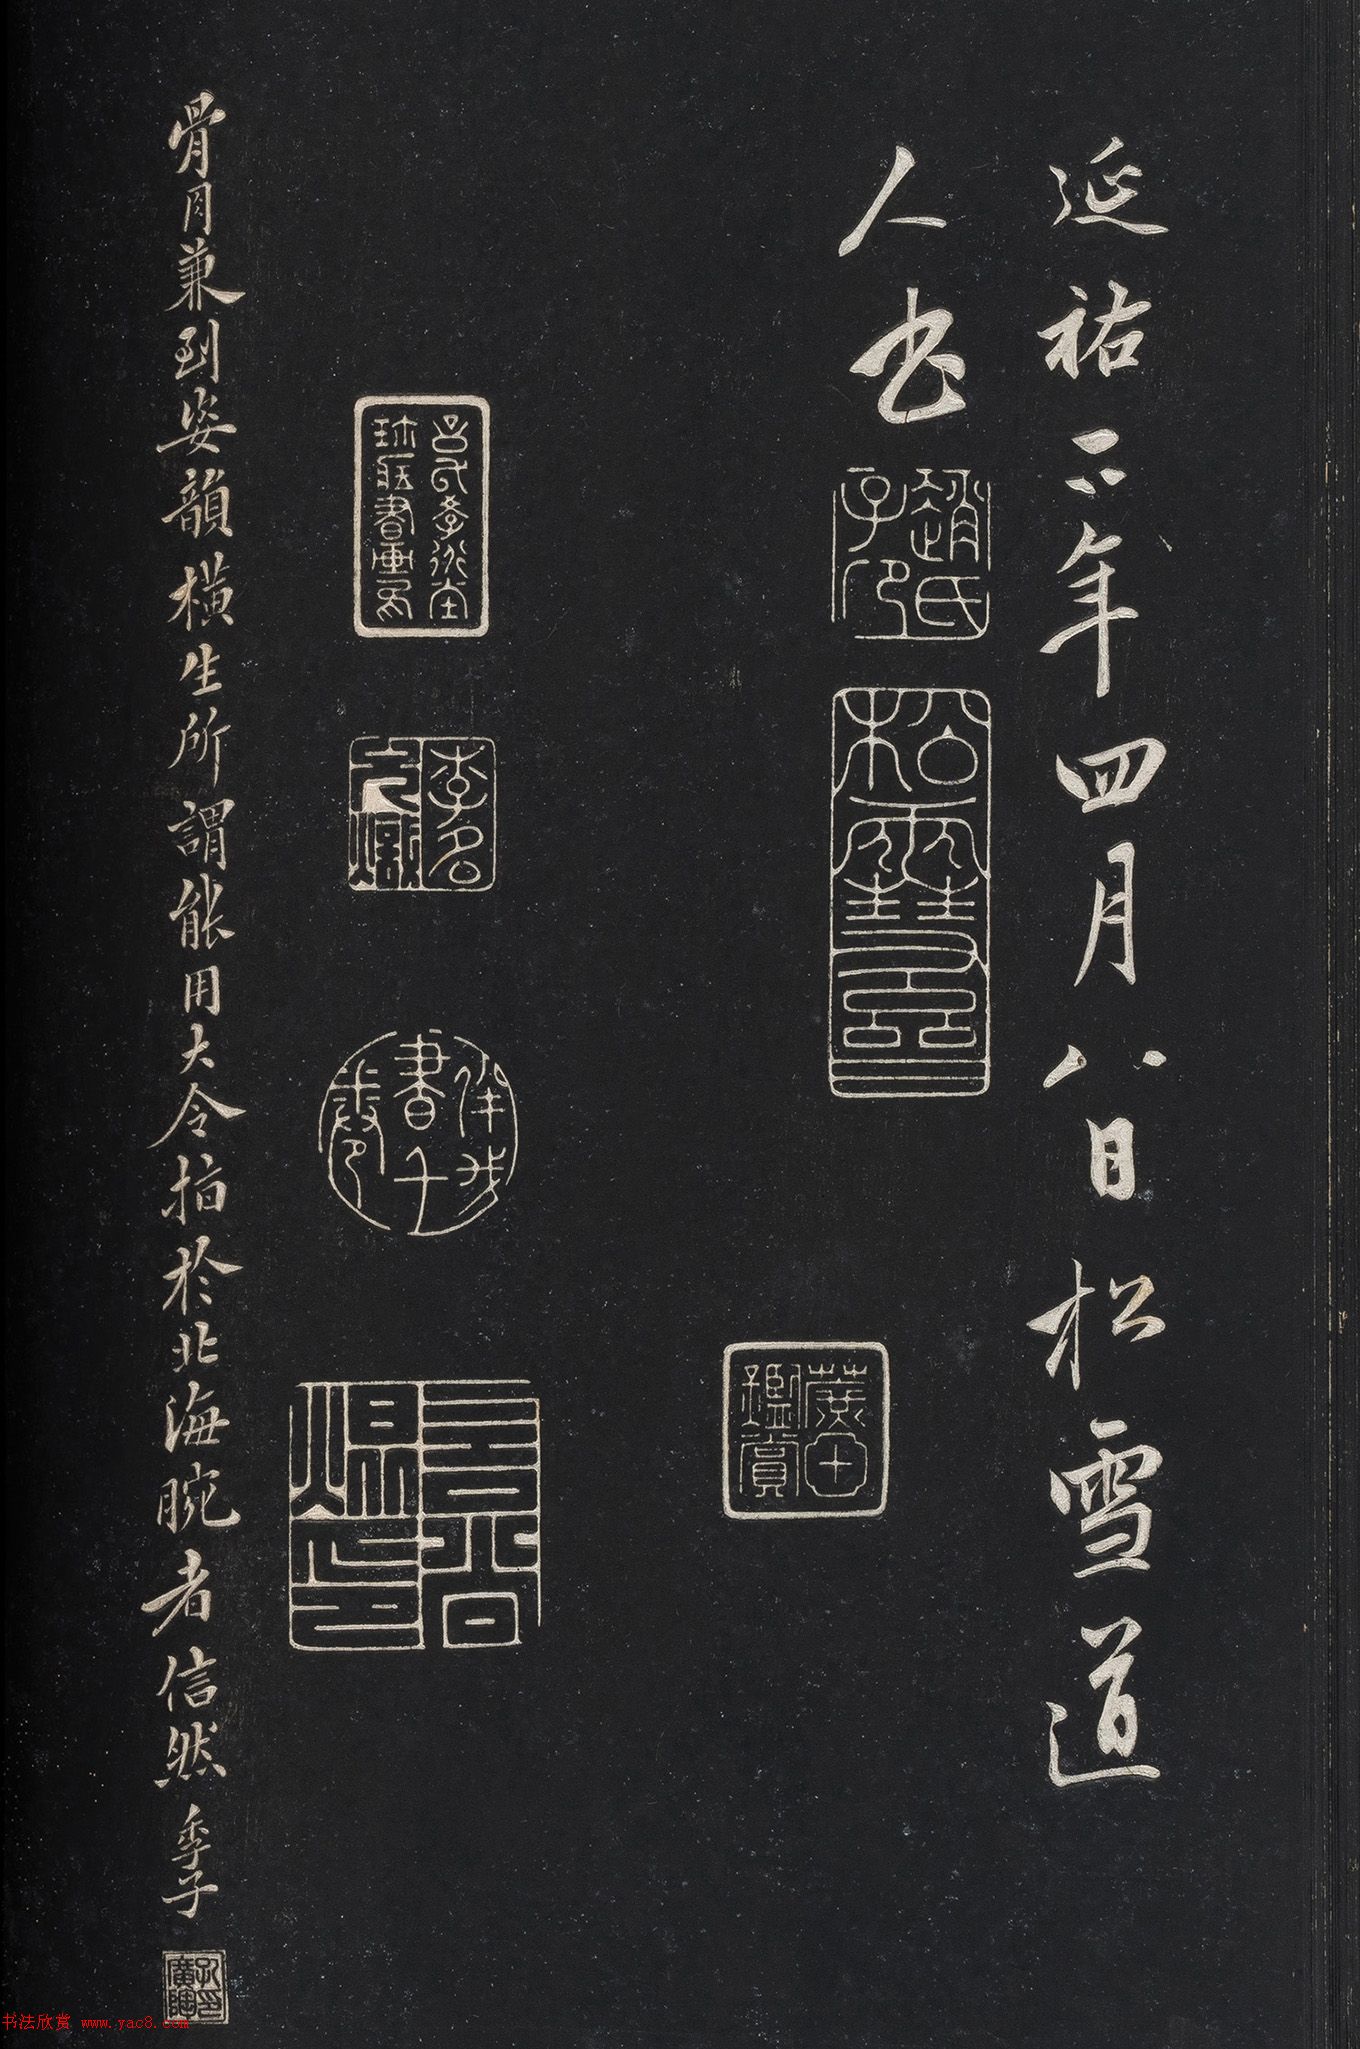 延祐六年四月八日松雪道
人書
趙氏子昂
松雪齋
鑑賞
骨月兼到姿韻橫生所謂能用大令指於北海腕者信然 季子
孔廣陶印
书法欣赏 www.yac8.com